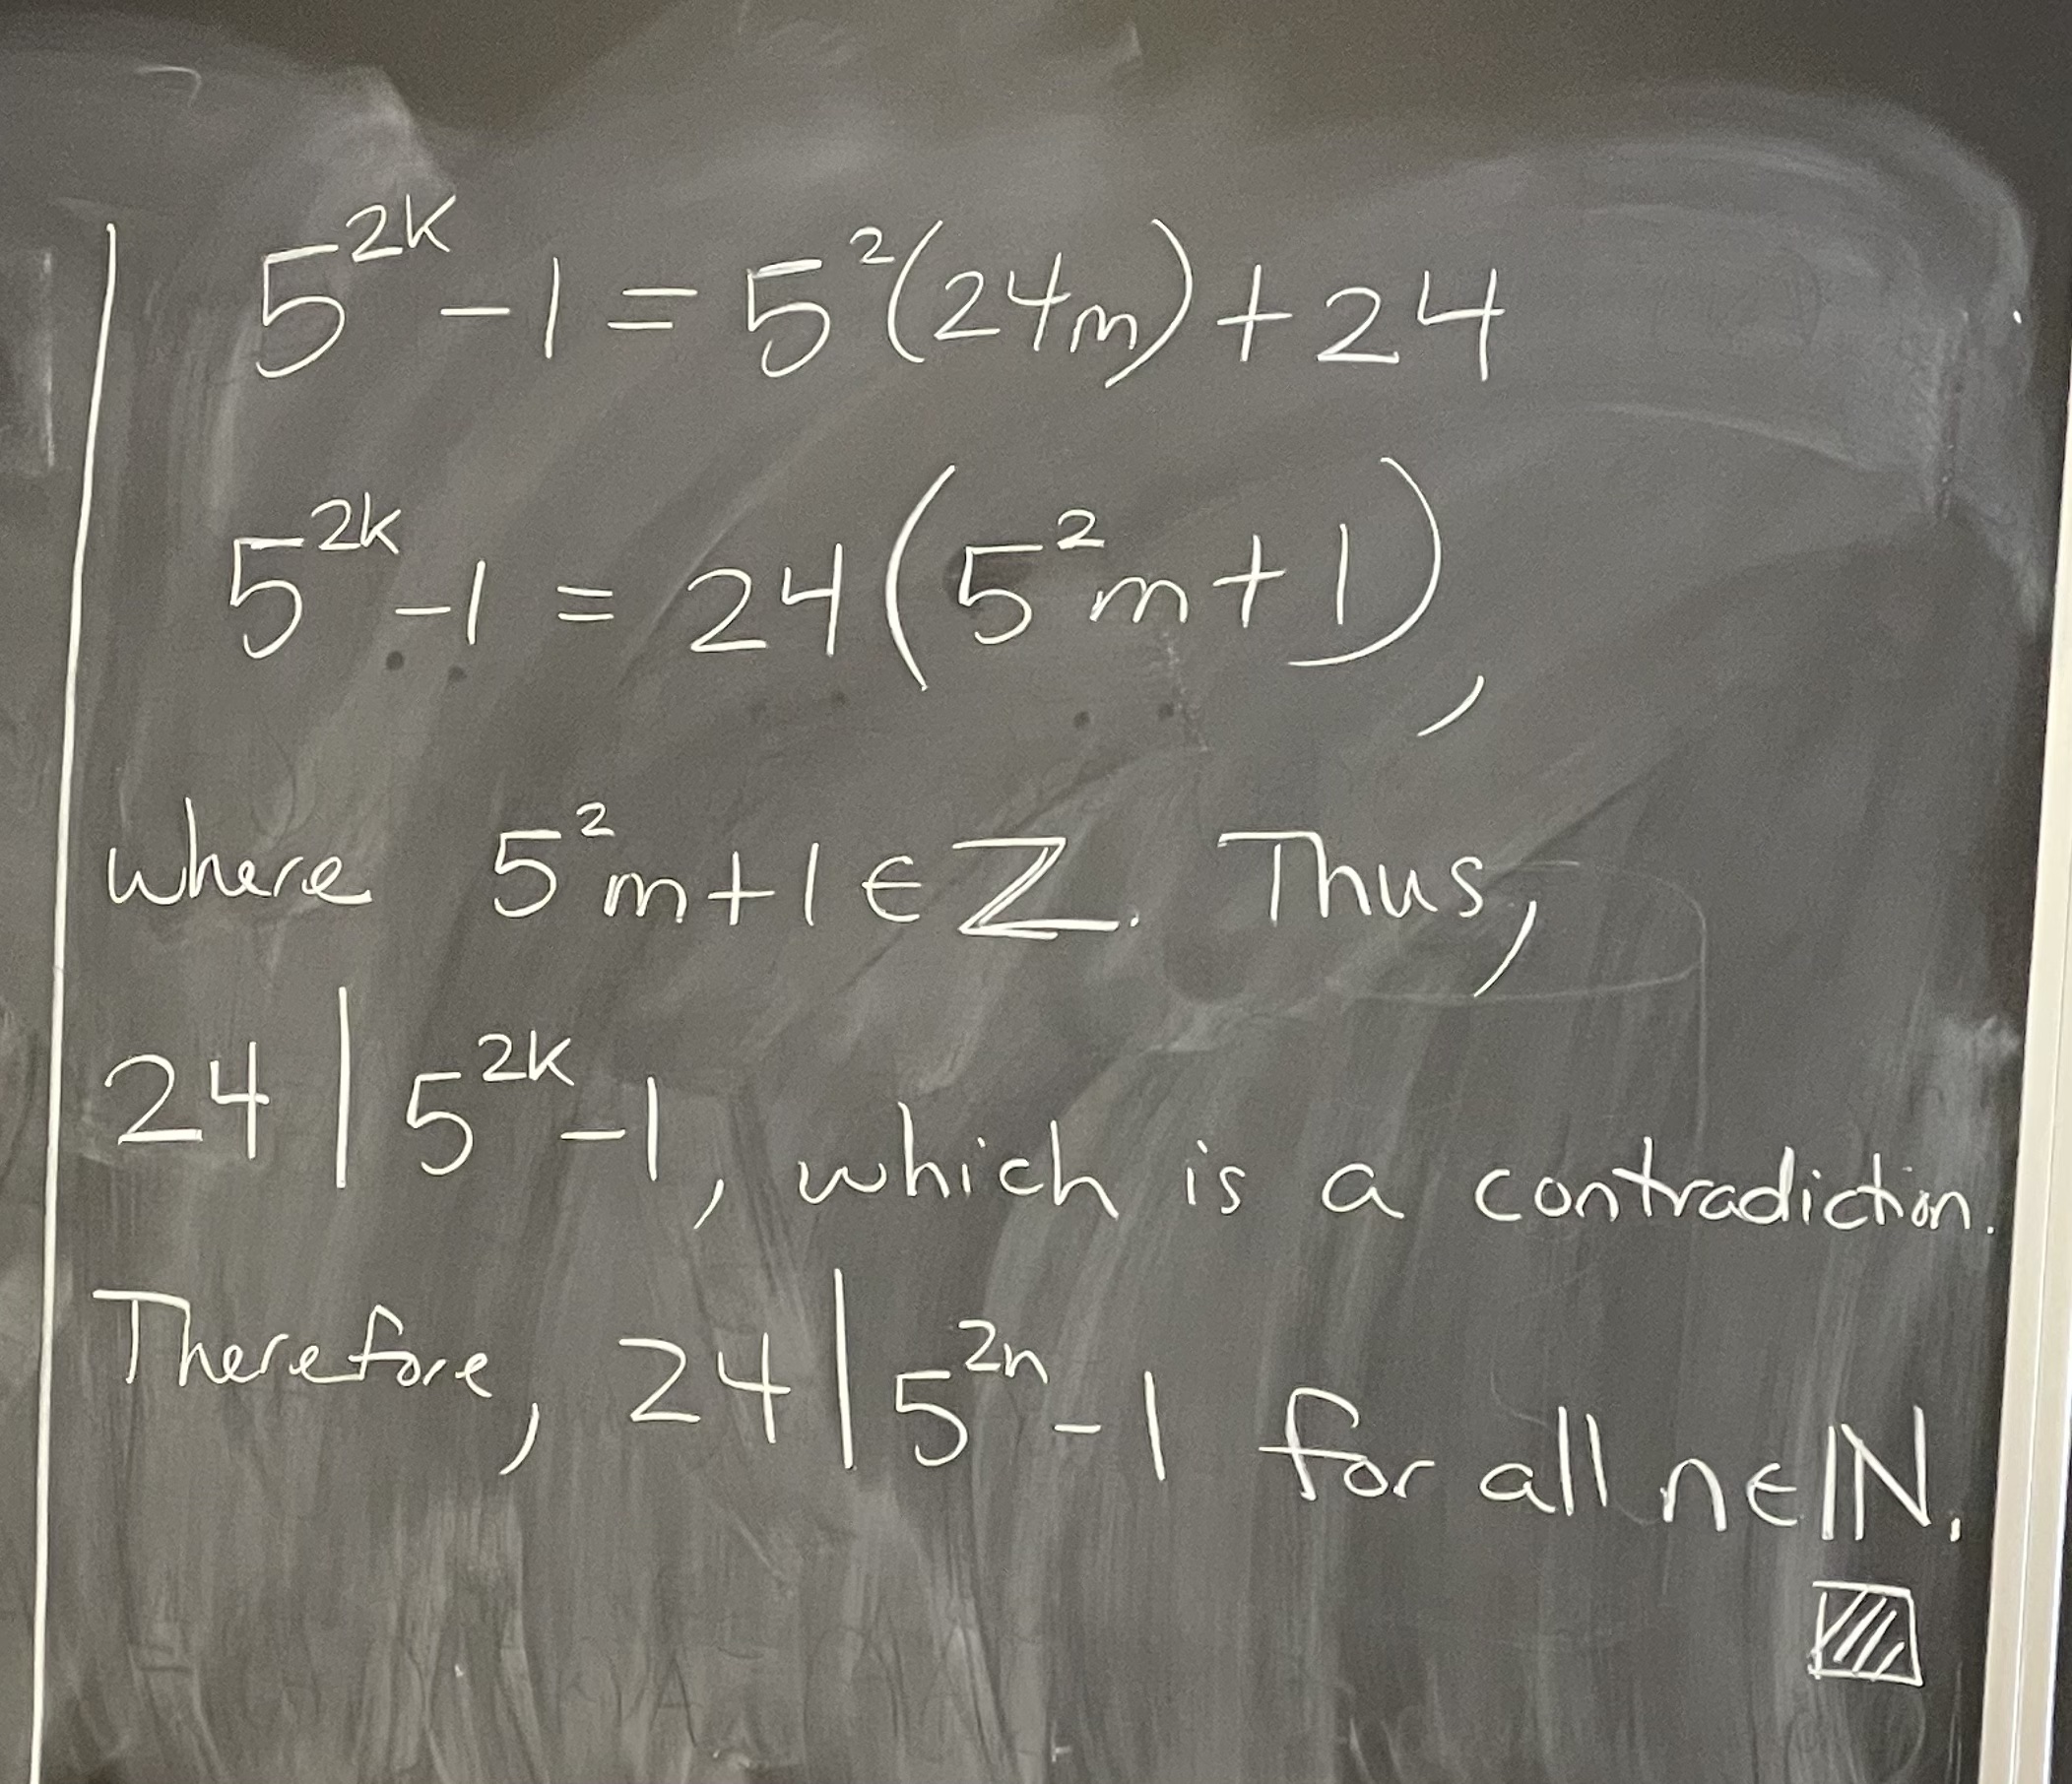 5²ᵏ - 1 = 5²(24m) + 24
5²ᵏ - 1 = 24(5²m + 1),
where 5²m + 1 ∈ ℤ. Thus,
24 | 5²ᵏ - 1, which is a contradiction.
Therefore, 24 | 5²ⁿ - 1 for all n ∈ ℕ.